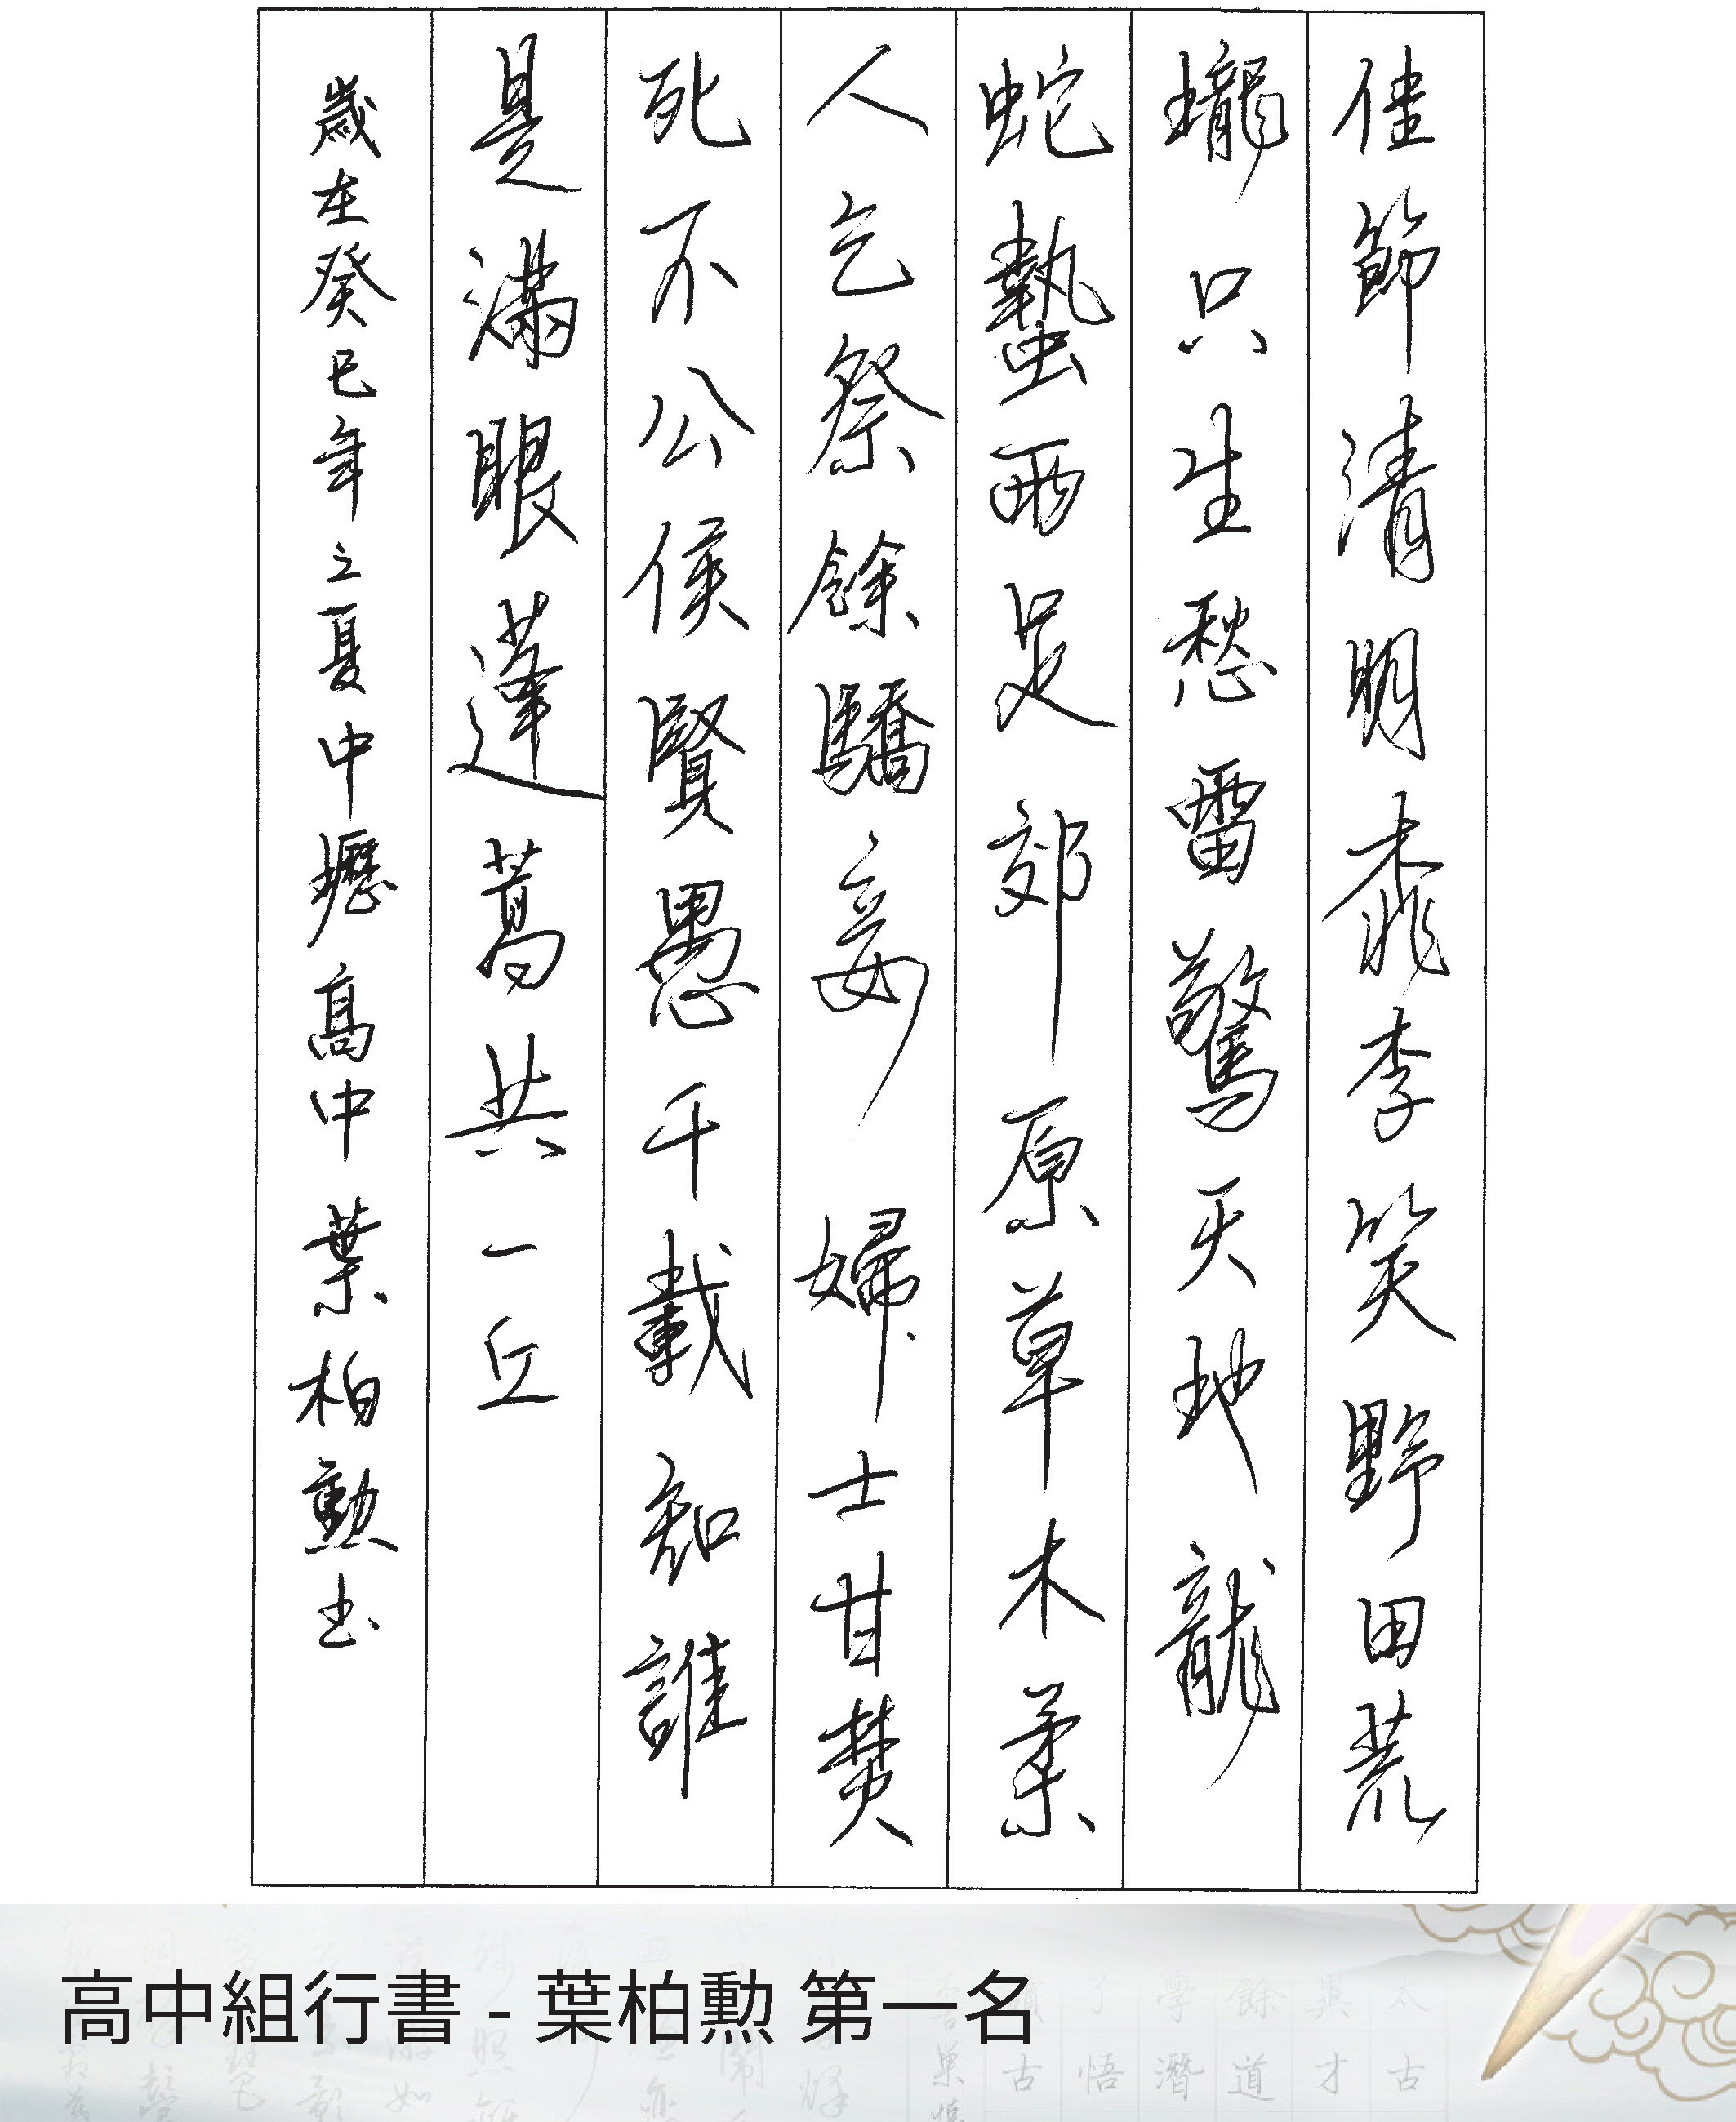 佳節清明桃李笑野田荒
壠只生愁雷驚天地龍
蛇蟄雨足郊原草木柔
人乞祭餘驕妾婦士甘焚
死不公侯賢愚千載知誰
是滿眼蓬蒿共一丘
歲在癸巳年之夏中壢高中葉柏勳書
高中組行書 - 葉柏勲 第一名